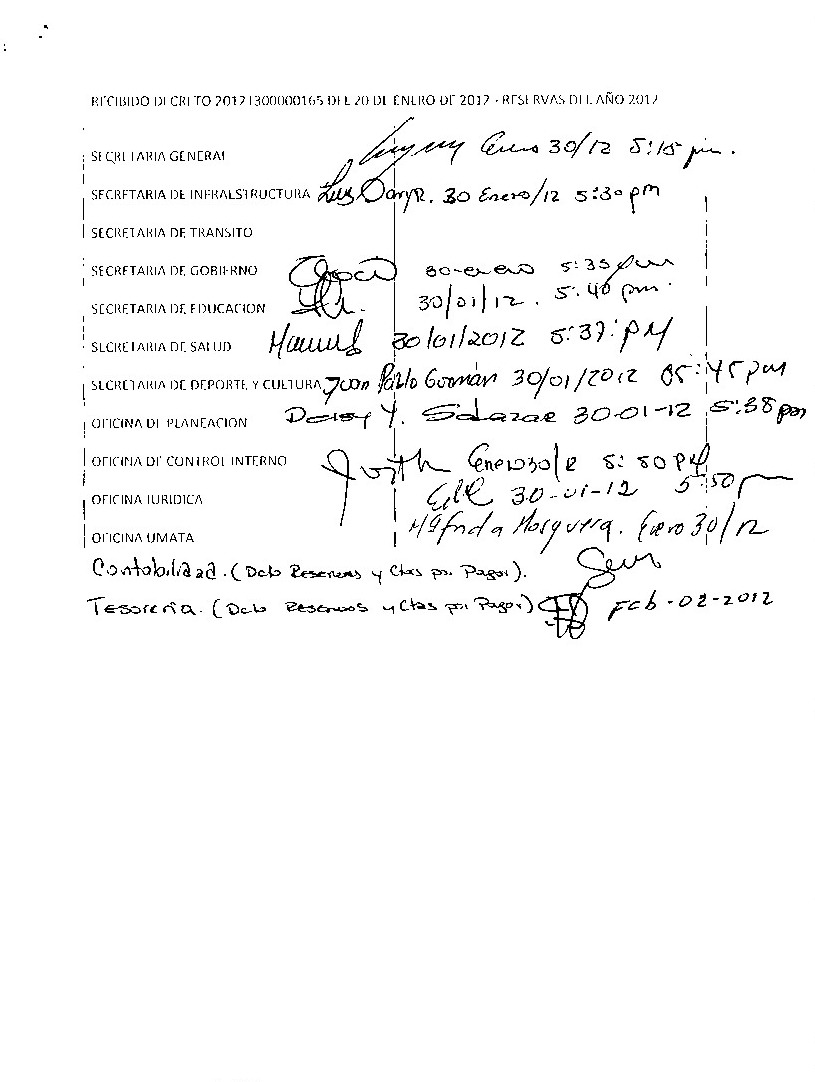 RECIBIDO DECRETO 20121300000165 DEL 20 DE ENERO DE 2012 - RESERVAS DEL AÑO 2012
SECRETARIA GENERAL Enero 30/12 5:15 pm.
SECRETARIA DE INFRAESTRUCTURA Luz Dary R. 30 Enero/12 5:30 pm
SECRETARIA DE TRANSITO
SECRETARIA DE GOBIERNO 30-enero 5:35 pm
SECRETARIA DE EDUCACION 30/01/12. 5:40 pm.
SECRETARIA DE SALUD Manuel 30/01/2012 5:37:PM
SECRETARIA DE DEPORTE Y CULTURA Juan Pablo Guzmán 30/01/2012 05:45 pm
OFICINA DE PLANEACION Deisy Y. Salazar 30-01-12 5:38 pm
OFICINA DE CONTROL INTERNO Enero 30/12 5:50 PM
OFICINA JURIDICA 30-01-12 5:50
OFICINA UMATA Mosquera. Enero 30/12
Contabilidad. (Dcto Reservas y Ctas por Pagar).
Tesorería. (Dcto Reservas y Ctas por Pagar) Feb-02-2012